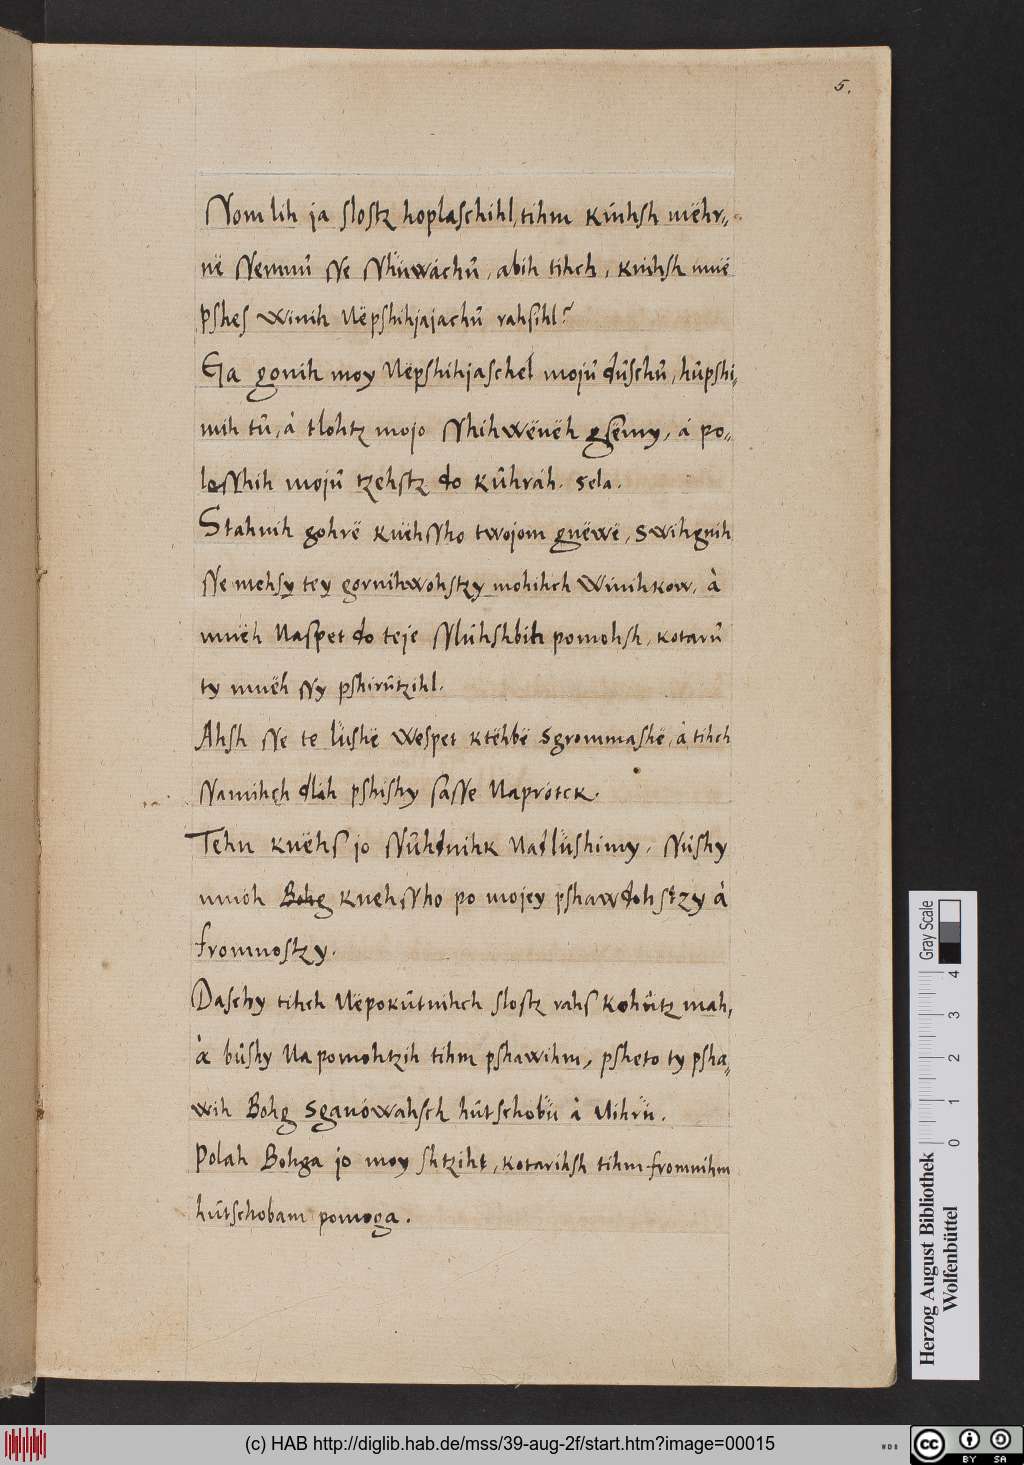 5.
Nom lih ja slostz hoplaschihl, tihm kúhsh mëhr-
në Nemmû Ne Nhüwáchû, abih tihch, knihsk mnë
pshes winih Nëpshihjajachû rahsihl?
Ga gonih moy Nëpshihjaschel mojû dûschû, hûpshi-
mih tû, à tlohtz mojo Nhihwënëh gsemy, á po-
loNhih mojû tzehstz do kûhráh. sela.
Stahnih gohrë knëhNho twojom gnëwë, swihgnih
Ne mehsy tey gornihwohstzy mohihch Winihkow, à
mnëh Naspet do teje Nlúhshbih pomohsh, kotarû
ty mnëh Ny pshirûtzihl.
Ahsh Ne te lüshë wespet ktëhbë sgrommashë, à tihch
Namihch dlah pshishy saNe Naprótck.
Tehn knëhs jo Nûhdnihk Nadlüshimy, Nûshy
mnöh Bohg knehNho po mojey pshawdohstzy à
fromnostzy.
Daschy tihch Nëpokûtnihch slostz rahs kohûtz mah,
à bûshy Na pomohtzih tihm pshawihm, psheto ty psha-
wih Bohg sganówahsch hûtschobü à Nihrü.
Polah Bohga jo moy shtziht, kotarihsh tihm fromnihm
hûtschobam pomoga.
Gray Scale
0 1 2 3 4
Herzog August Bibliothek
Wolfenbüttel
(c) HAB http://diglib.hab.de/mss/39-aug-2f/start.htm?image=00015
WDB
cc BY SA